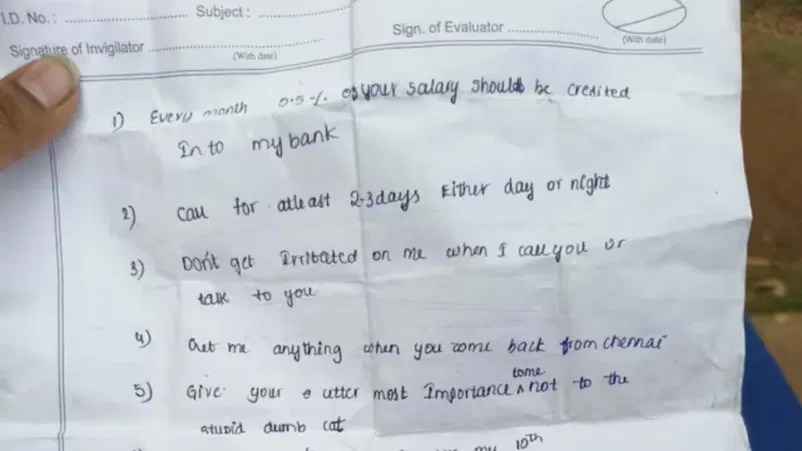 I.D. No.: ........................ Subject: ........................
Signature of Invigilator ........................ Sign. of Evaluator ........................
(With date) (With date)
1) Every month 0.5 % of your salary should be credited
Into my bank
2) Call for atleast 2-3 days Either day or night
3) Don't get Irritated on me when I call you or
talk to you
4) Get me anything when you come back from chennai
5) Give your utter most Importance ^ tome not to the
stupid dumb cat
my 10th